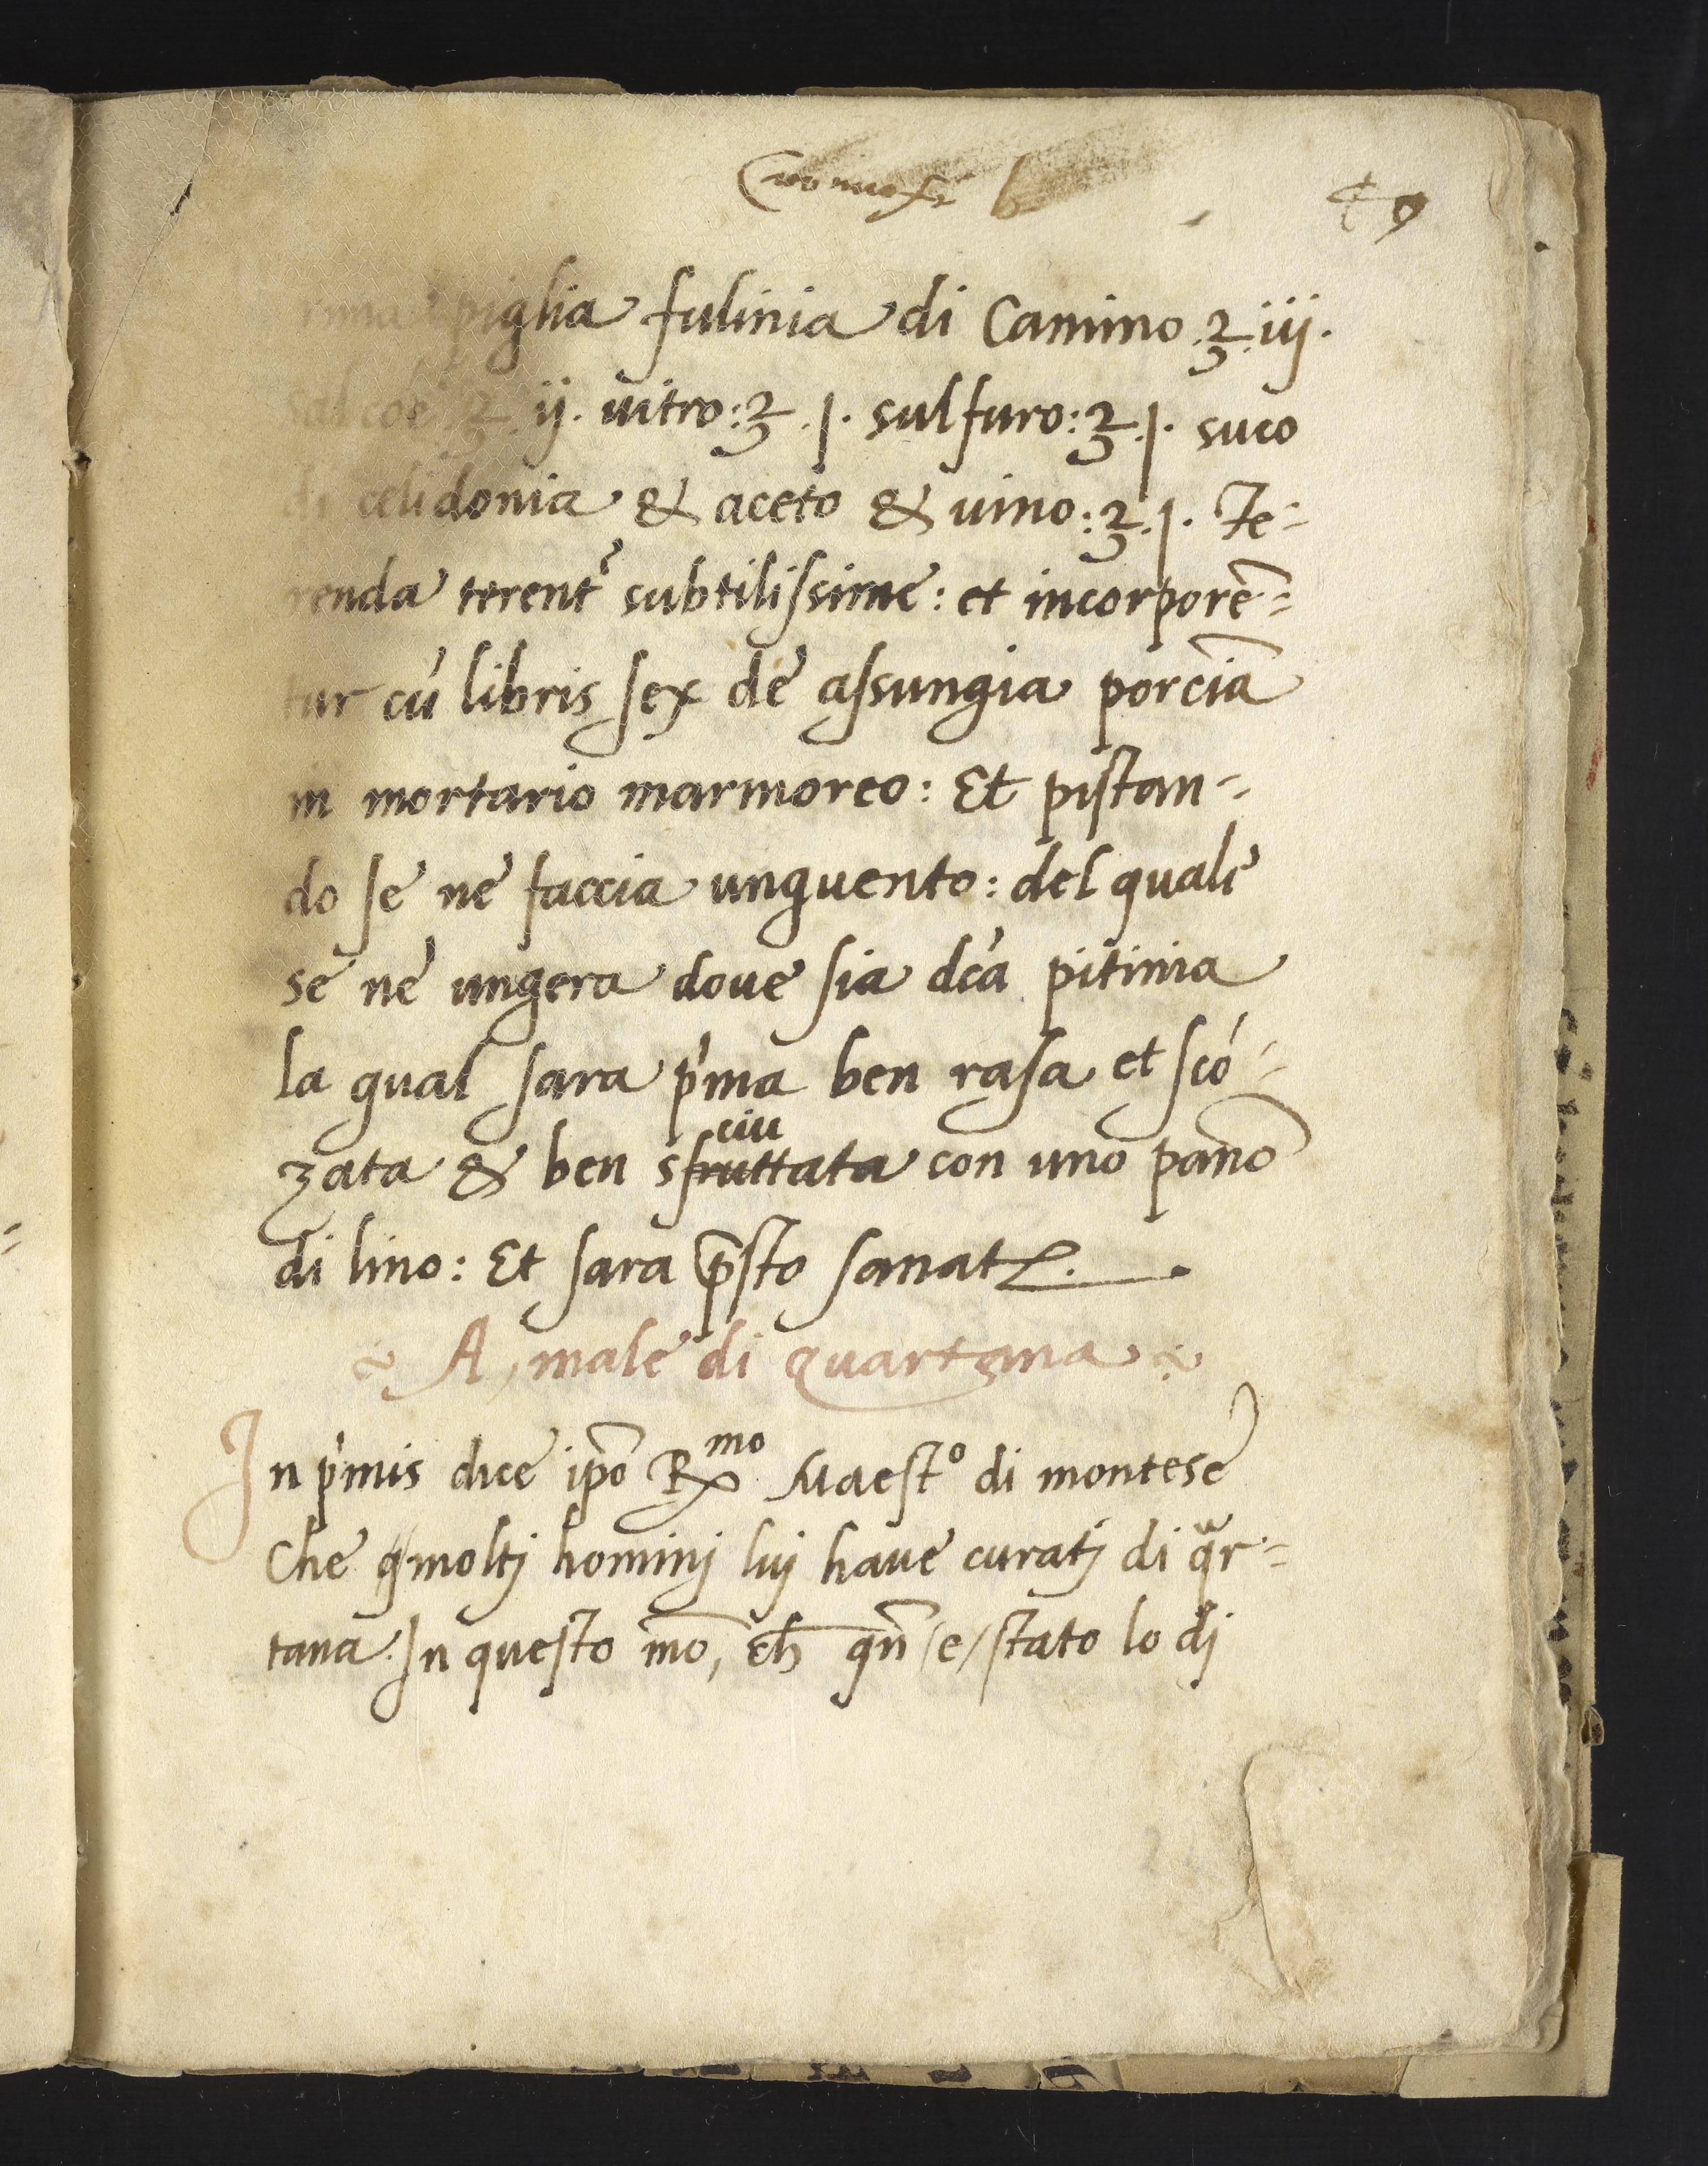 49
piglia fulinia di Camino .℥. iij.
sal coē ℥. ij. uitro: ℥. j. sulfuro: ℥. j. suco
di celidonia & aceto & uino: ℥. j. Te=
renda terent᷑ subtilissime: et incorporē=
tur cū libris sex de assungia porcīa
in mortario marmoreo: Et pistan=
do se ne faccia unguento: del quale
se ne ungera doue sia dc̄a pitinia
la qual sara p'ma ben rasa et sco=
zata & ben sfruttata ciu con uno pano
di lino: Et sara p̄sto sanat
A, male di quartana
In p'mis dice ip̄o Rmo Maesto di montese
Che molti homini lui haue curati di qar=
tana. In questo m̄o, Ch qn̄ /e/ stato lo di